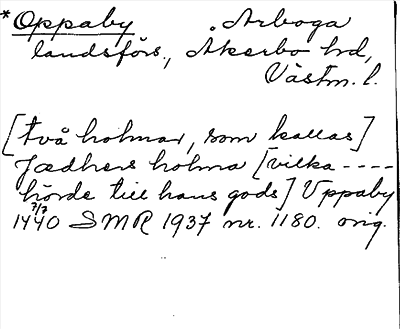 *Oppaby Arboga
landsförs., Åkerbo hd,
Västm. l.
[två holmar, som kallas]
Jædhers holma [vilka ----
hörde till hans gods] Vppaby
7/3
1440 SMR 1937 nr. 1180. orig.